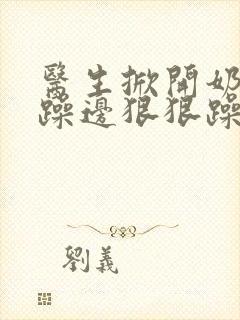 醫生掀開奶
躁邊狠狠躁
劉義